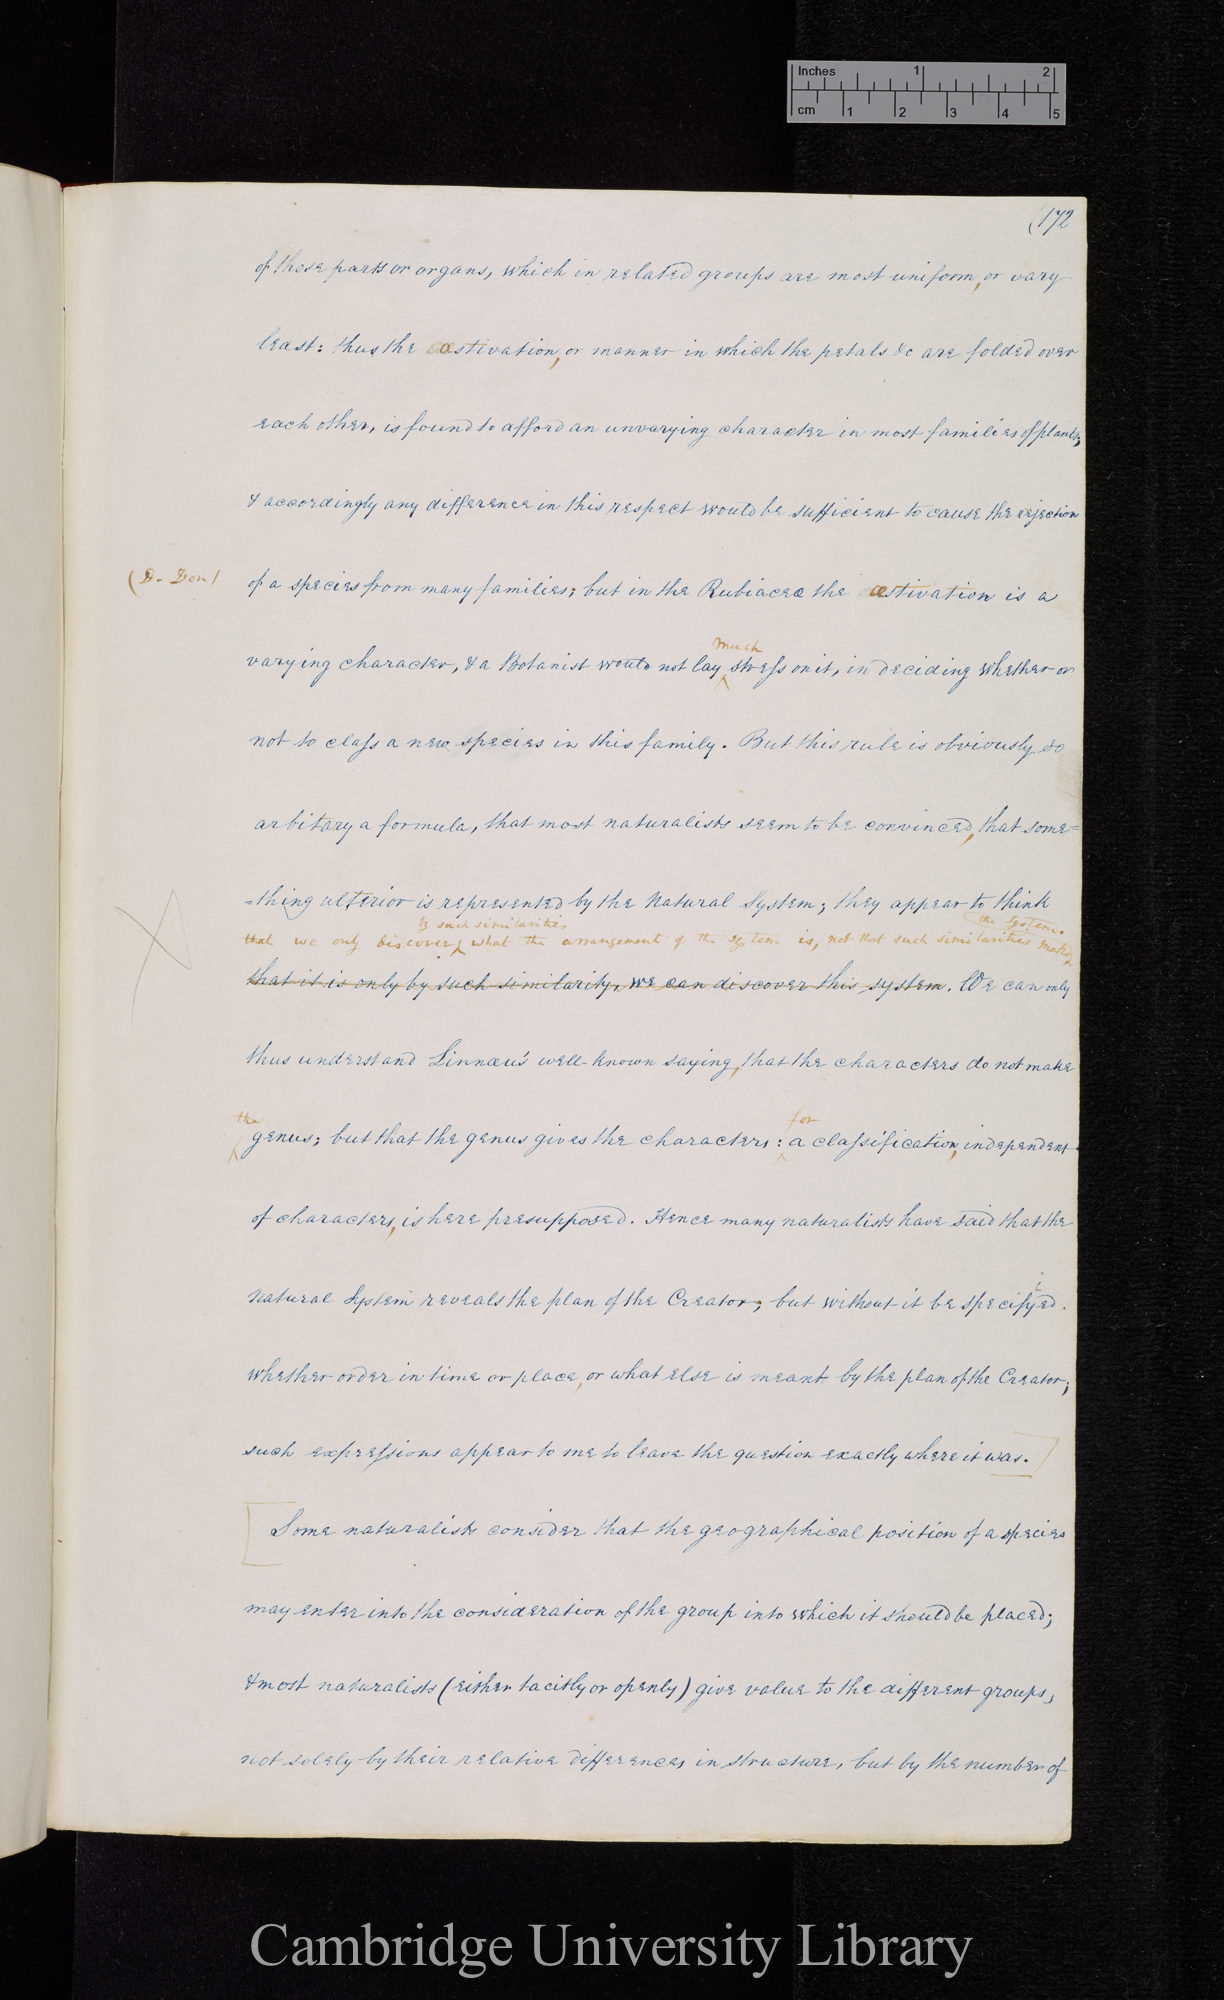 Inches 1 2
cm 1 2 3 4 5
(172
of those parts or organs, which in related groups are most uniform, or vary
least: thus the æstivation, or manner in which the petals &c are folded over
each other, is found to afford an unvarying character in most families of plants,
& accordingly any difference in this respect would be sufficient to cause the rejection
(D. Don) of a species from many families; but in the Rubiaceæ the æstivation is a
much
varying character, & a Botanist would not lay stress on it, in deciding whether or
not to class a new species in this family. But this rule is obviously so
arbitary a formula, that most naturalists seem to be convinced, that some=
=thing ulterior is represented by the Natural System; they appear to think
by such similarities the system.
that we only discover what the arrangement of the system is, not that such similarities make
that it is only by such similarity, we can discover this system. We can only
thus understand Linnæus' well-known saying, that the characters do not make
the for
genus; but that the genus gives the characters: a classification, independent
of characters, is here presupposed. Hence many naturalists have said that the
i
natural System reveals the plan of the Creator; but without it be specifyed.
whether order in time or place, or what else is meant by the plan of the Creator;
such expressions appear to me to leave the question exactly where it was.]
[Some naturalists consider that the geographical position of a species
may enter into the consideration of the group into which it should be placed;
& most naturalists (either tacitly or openly) give value to the different groups,
not solely by their relative differences in structure, but by the number of
Cambridge University Library